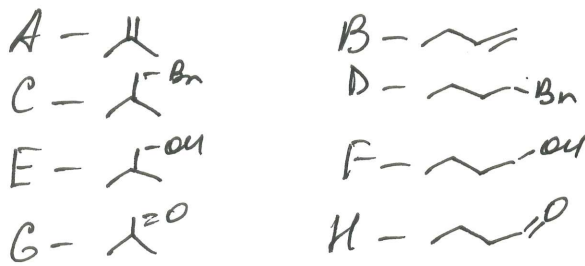 A —
B —
C — Br
D — Br
E — OH
F — OH
G — =O
H — O